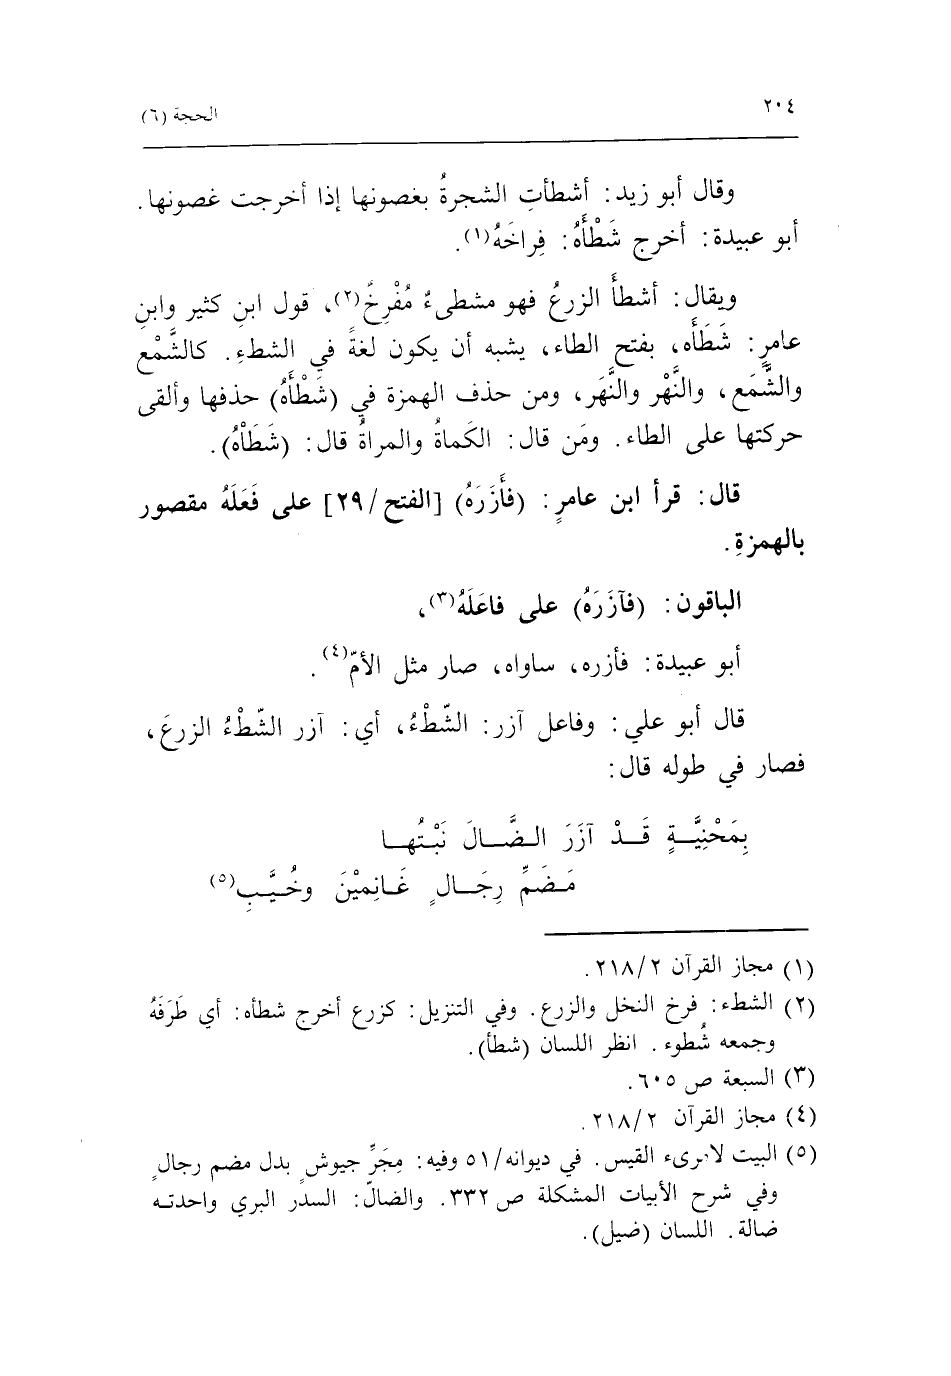 ٢٠٤
الحجة (٦)
وقال أبو زيد: أشطأتِ الشجرةُ بغصونها إذا أخرجت غصونها.
أبو عبيدة: أخرج شَطْأَهُ: فِراخَهُ(١).
ويقال: أشطأَ الزرعُ فهو مشطىءٌ مُفْرِخٌ(٢)، قول ابنِ كثير وابنِ
عامرٍ: شَطَأَه، بفتح الطاء، يشبه أن يكون لغةً في الشطءِ. كالشَّمْعِ
والشَّمَع، والنَّهْر والنَّهَر، ومن حذف الهمزة في (شَطْأَهُ) حذفها وألقى
حركتها على الطاء. ومَن قال: الكَماةُ والمراةُ قال: (شَطَاْهُ).
قال: قرأ ابن عامرٍ: (فأَزَرَهُ) [الفتح/٢٩] على فَعَلَهُ مقصور
بالهمزةِ.
الباقون: (فآزَرَهُ) على فاعَلَهُ(٣)،
أبو عبيدة: فأزره، ساواه، صار مثل الأمّ(٤).
قال أبو علي: وفاعل آزر: الشّطْءُ، أي: آزر الشّطْءُ الزرعَ،
فصار في طوله قال:
بِمَحْنِيَّةٍ قَدْ آزَرَ الضَّالَ نَبْتُها
مَضَمِّ رِجَالٍ غَانِمْيْنَ وخُيَّبِ(٥)
(١) مجاز القرآن ٢١٨/٢.
(٢) الشطء: فرخ النخل والزرع. وفي التنزيل: كزرع أخرج شطأه: أي طَرَفَهُ
وجمعه شُطوء. انظر اللسان (شطأ).
(٣) السبعة ص ٦٠٥.
(٤) مجاز القرآن ٢١٨/٢.
(٥) البيت لامرىء القيس. في ديوانه/٥١ وفيه: مِجَرِّ جيوشٍ بدل مضم رجالٍ
وفي شرح الأبيات المشكلة ص ٣٣٢. والضالّ: السدر البري واحدته
ضالة. اللسان (ضيل).